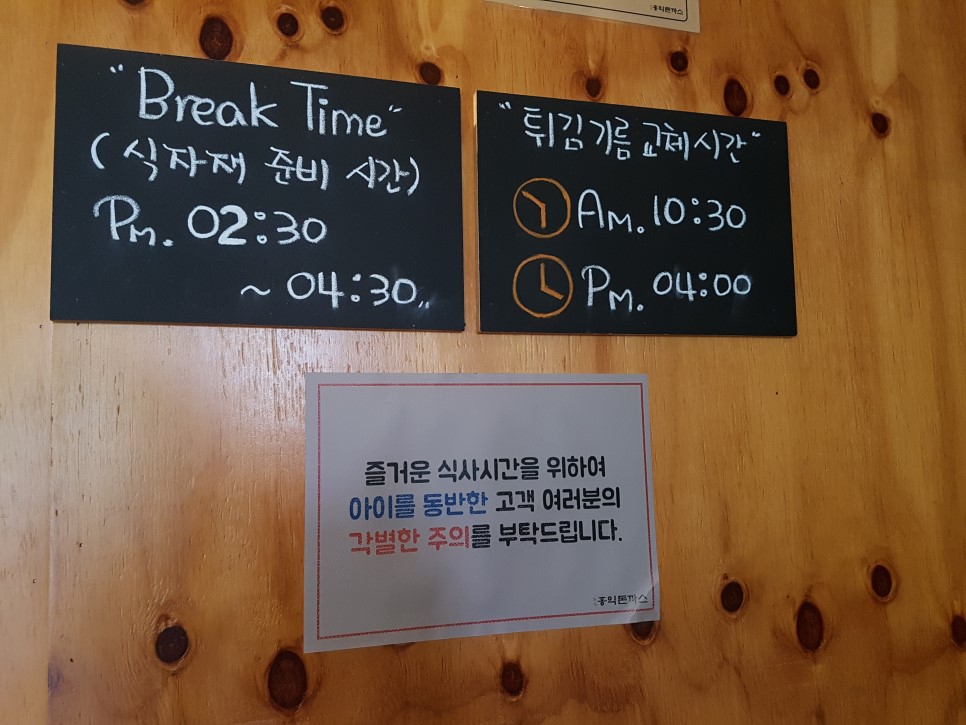 홍익돈까스
"Break Time"
(식자재 준비 시간)
Pm. 02:30
~ 04:30
"튀김기름 교체시간"
Am. 10:30
Pm. 04:00
즐거운 식사시간을 위하여
아이를 동반한 고객 여러분의
각별한 주의를 부탁드립니다.
홍익돈까스